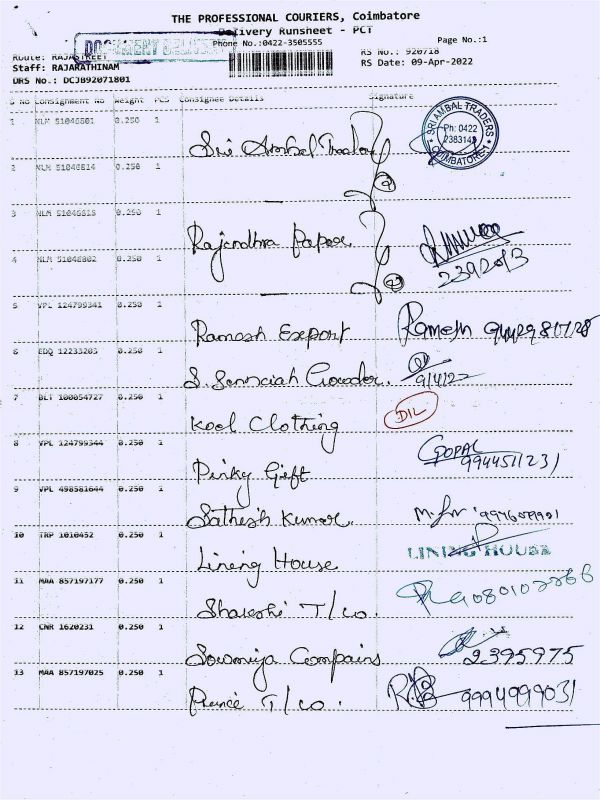 THE PROFESSIONAL COURIERS, Coimbatore
Delivery Runsheet - PCT
DOCUMENT
Phone No.:0422-3505555
Page No.:1
Route: RAJASTREET
RS No.: 920718
Staff: RAJARATHINAM
RS Date: 09-Apr-2022
DRS No.: DCJ092071801
S No Consignment No Weight PCS Consignee Details Signature
1 KLM 51046801 0.250 1 Sri Ambal Traders
SRI AMBAL TRADERS
Ph: 0422
2383149
COIMBATORE-1
2 KLM 51046814 0.250 1
3 KLM 51046815 0.250 1 Rajendhra Paper
4 KLM 51046802 0.250 1
2392013
5 VPL 124799341 0.250 1 Ramesh Export Ramesh
6 EDQ 12233203 0.250 1 S. Gowder. 9/4/22
7 BLT 100054727 0.250 1 Kool Clothing DIL
8 VPL 124799344 0.250 1 Pinky Gift GOPAL
9944511231
9 VPL 498581644 0.250 1 Sathesh Kumar.
10 TRP 1010452 0.250 1 Lining House LINING HOUSE
11 MAA 857197177 0.250 1 T/co.
12 CNR 1620231 0.250 1 Sowmiya Compains 2395975
13 MAA 857197025 0.250 1 Prince T/co. 9994999031